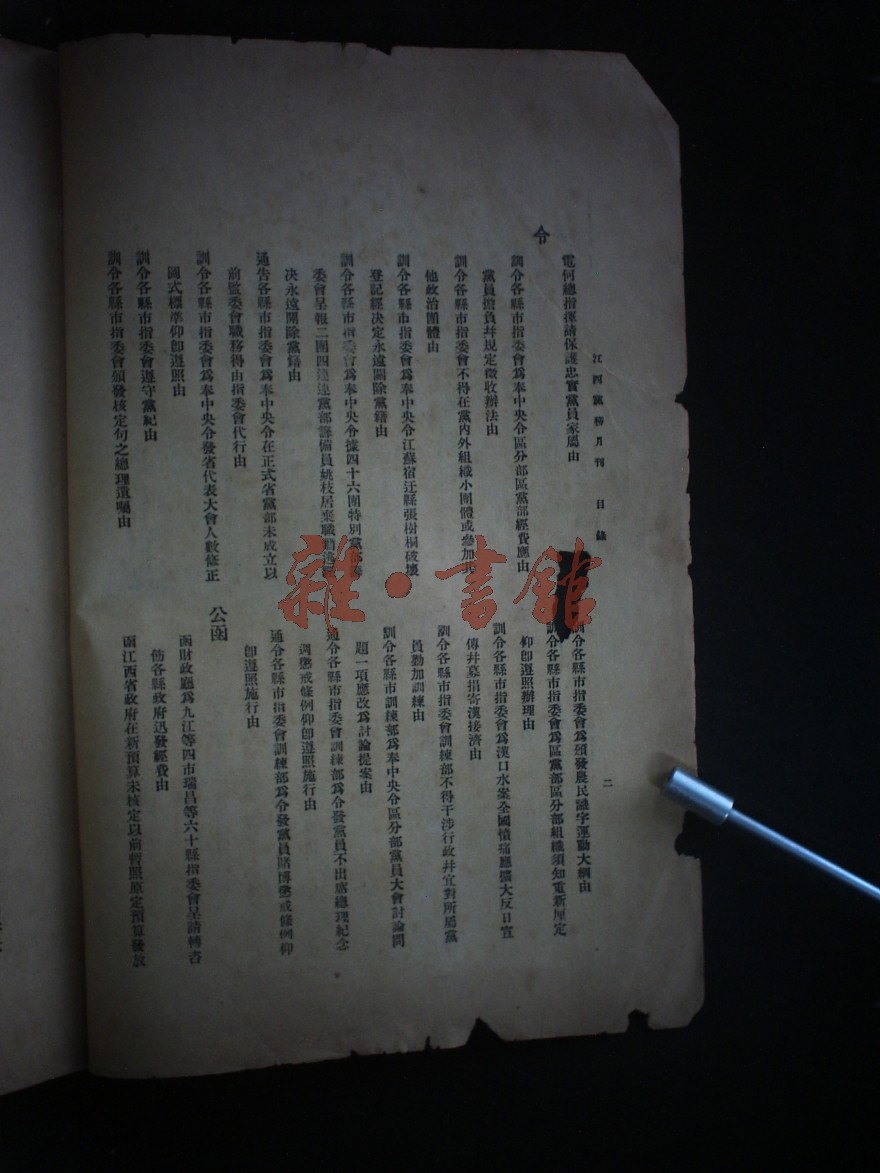 江西黨務月刊　目錄
二
電何總指揮請保護忠實黨員家屬由
令
訓令各縣市指委會為奉中央令區分部區黨部經費應由
黨員擔負幷規定徵收辦法由
訓令各縣市指委會不得在黨內外組織小團體或參加其
他政治團體由
訓令各縣市指委會為奉中央令江蘇宿迁縣張樹桐破壞
登記經决定永遠開除黨籍由
訓令各縣市指委會為奉中央令據四十六團特別黨部
委會呈報二團四連連黨部課備員姚枝居棄職
决永遠開除黨籍由
通告各縣市指委會為奉中央令在正式省黨部未成立以
前監委會職務得由指委會代行由
訓令各縣市指委會為奉中央令發省代表大會人數修正
圖式標準仰卽遵照由
訓令各縣市指委會遵守黨紀由
訓令各縣市指委會頒發核定句之總理遺囑由
訓令各縣市指委會為頒發農民識字運動大綱由
訓令各縣市指委會為區黨部區分部組織須知電新厘定
仰卽遵照辦理由
訓令各縣市指委會為漢口水案全國憤痛應擴大反日宣
傳幷募捐寄漢接濟由
訓令各縣市指委會訓練部不得干涉行政幷宜對所屬黨
員勤加訓練由
訓令各縣市訓練部為奉中央令區分部黨員大會討論問
題一項應改為討論提案由
通令各縣市指委會訓練部為令發黨員不出席總理紀念
週懲戒條例仰卽遵照施行由
通令各縣市指委會訓練部為令發黨員賭博懲戒條例仰
卽遵照施行由
公函
函財政廳為九江等四市瑞昌等六十縣指委會呈請轉咨
飭各縣政府迅發經費由
函江西省政府在新預算未核定以前暫照原定預算發放
雜·書館